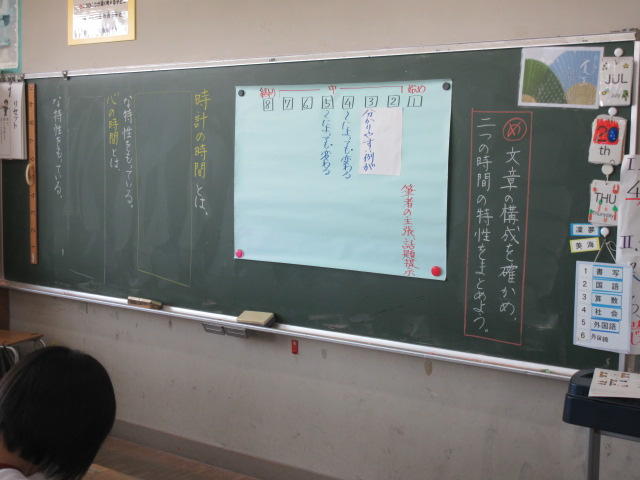 め 文章の構成を確かめ、
二つの時間の特性をまとめよう。
始め
中
終わり
1
2
3
4
5
6
7
8
筆者の主張、話題提示
分かりやすい例が
よっても変わる
よっても変わる
時計の時間とは、
な特性をもっている。
心の時間とは、
な特性をもっている。
JUL
20
th
THU
Thursday
美海
1 書写
2 国語
3 算数
4 社会
5 外国語
6
リセット